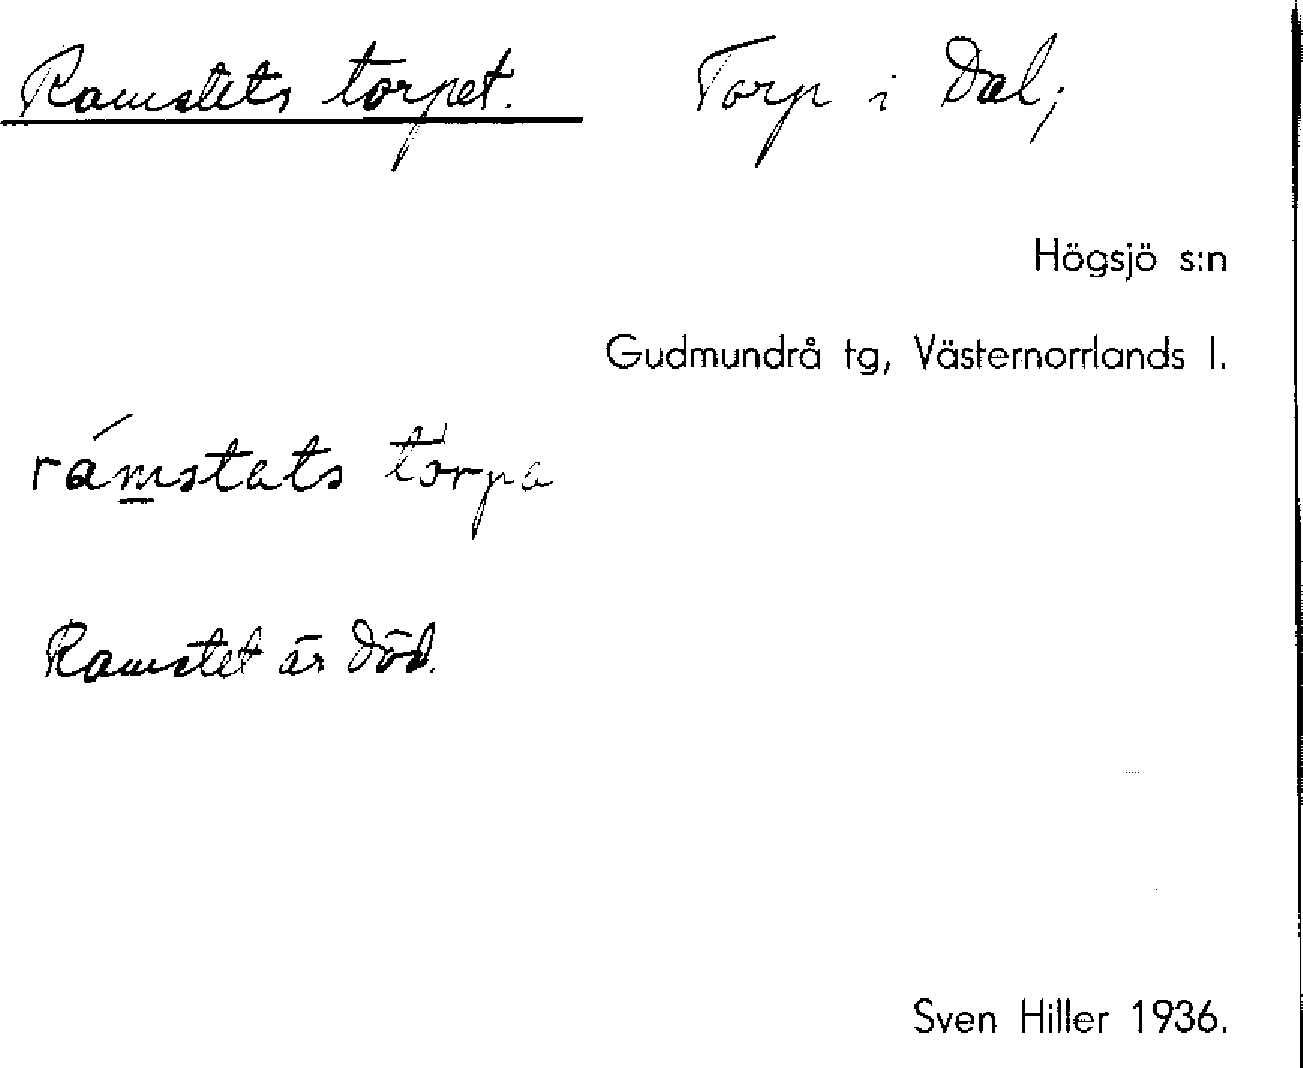 Ramstets torpet. Torp i Dal;
Högsjö s:n
Gudmundrå tg, Västernorrlands l.
rámstats torpa
Ramstet är död.
Sven Hiller 1936.